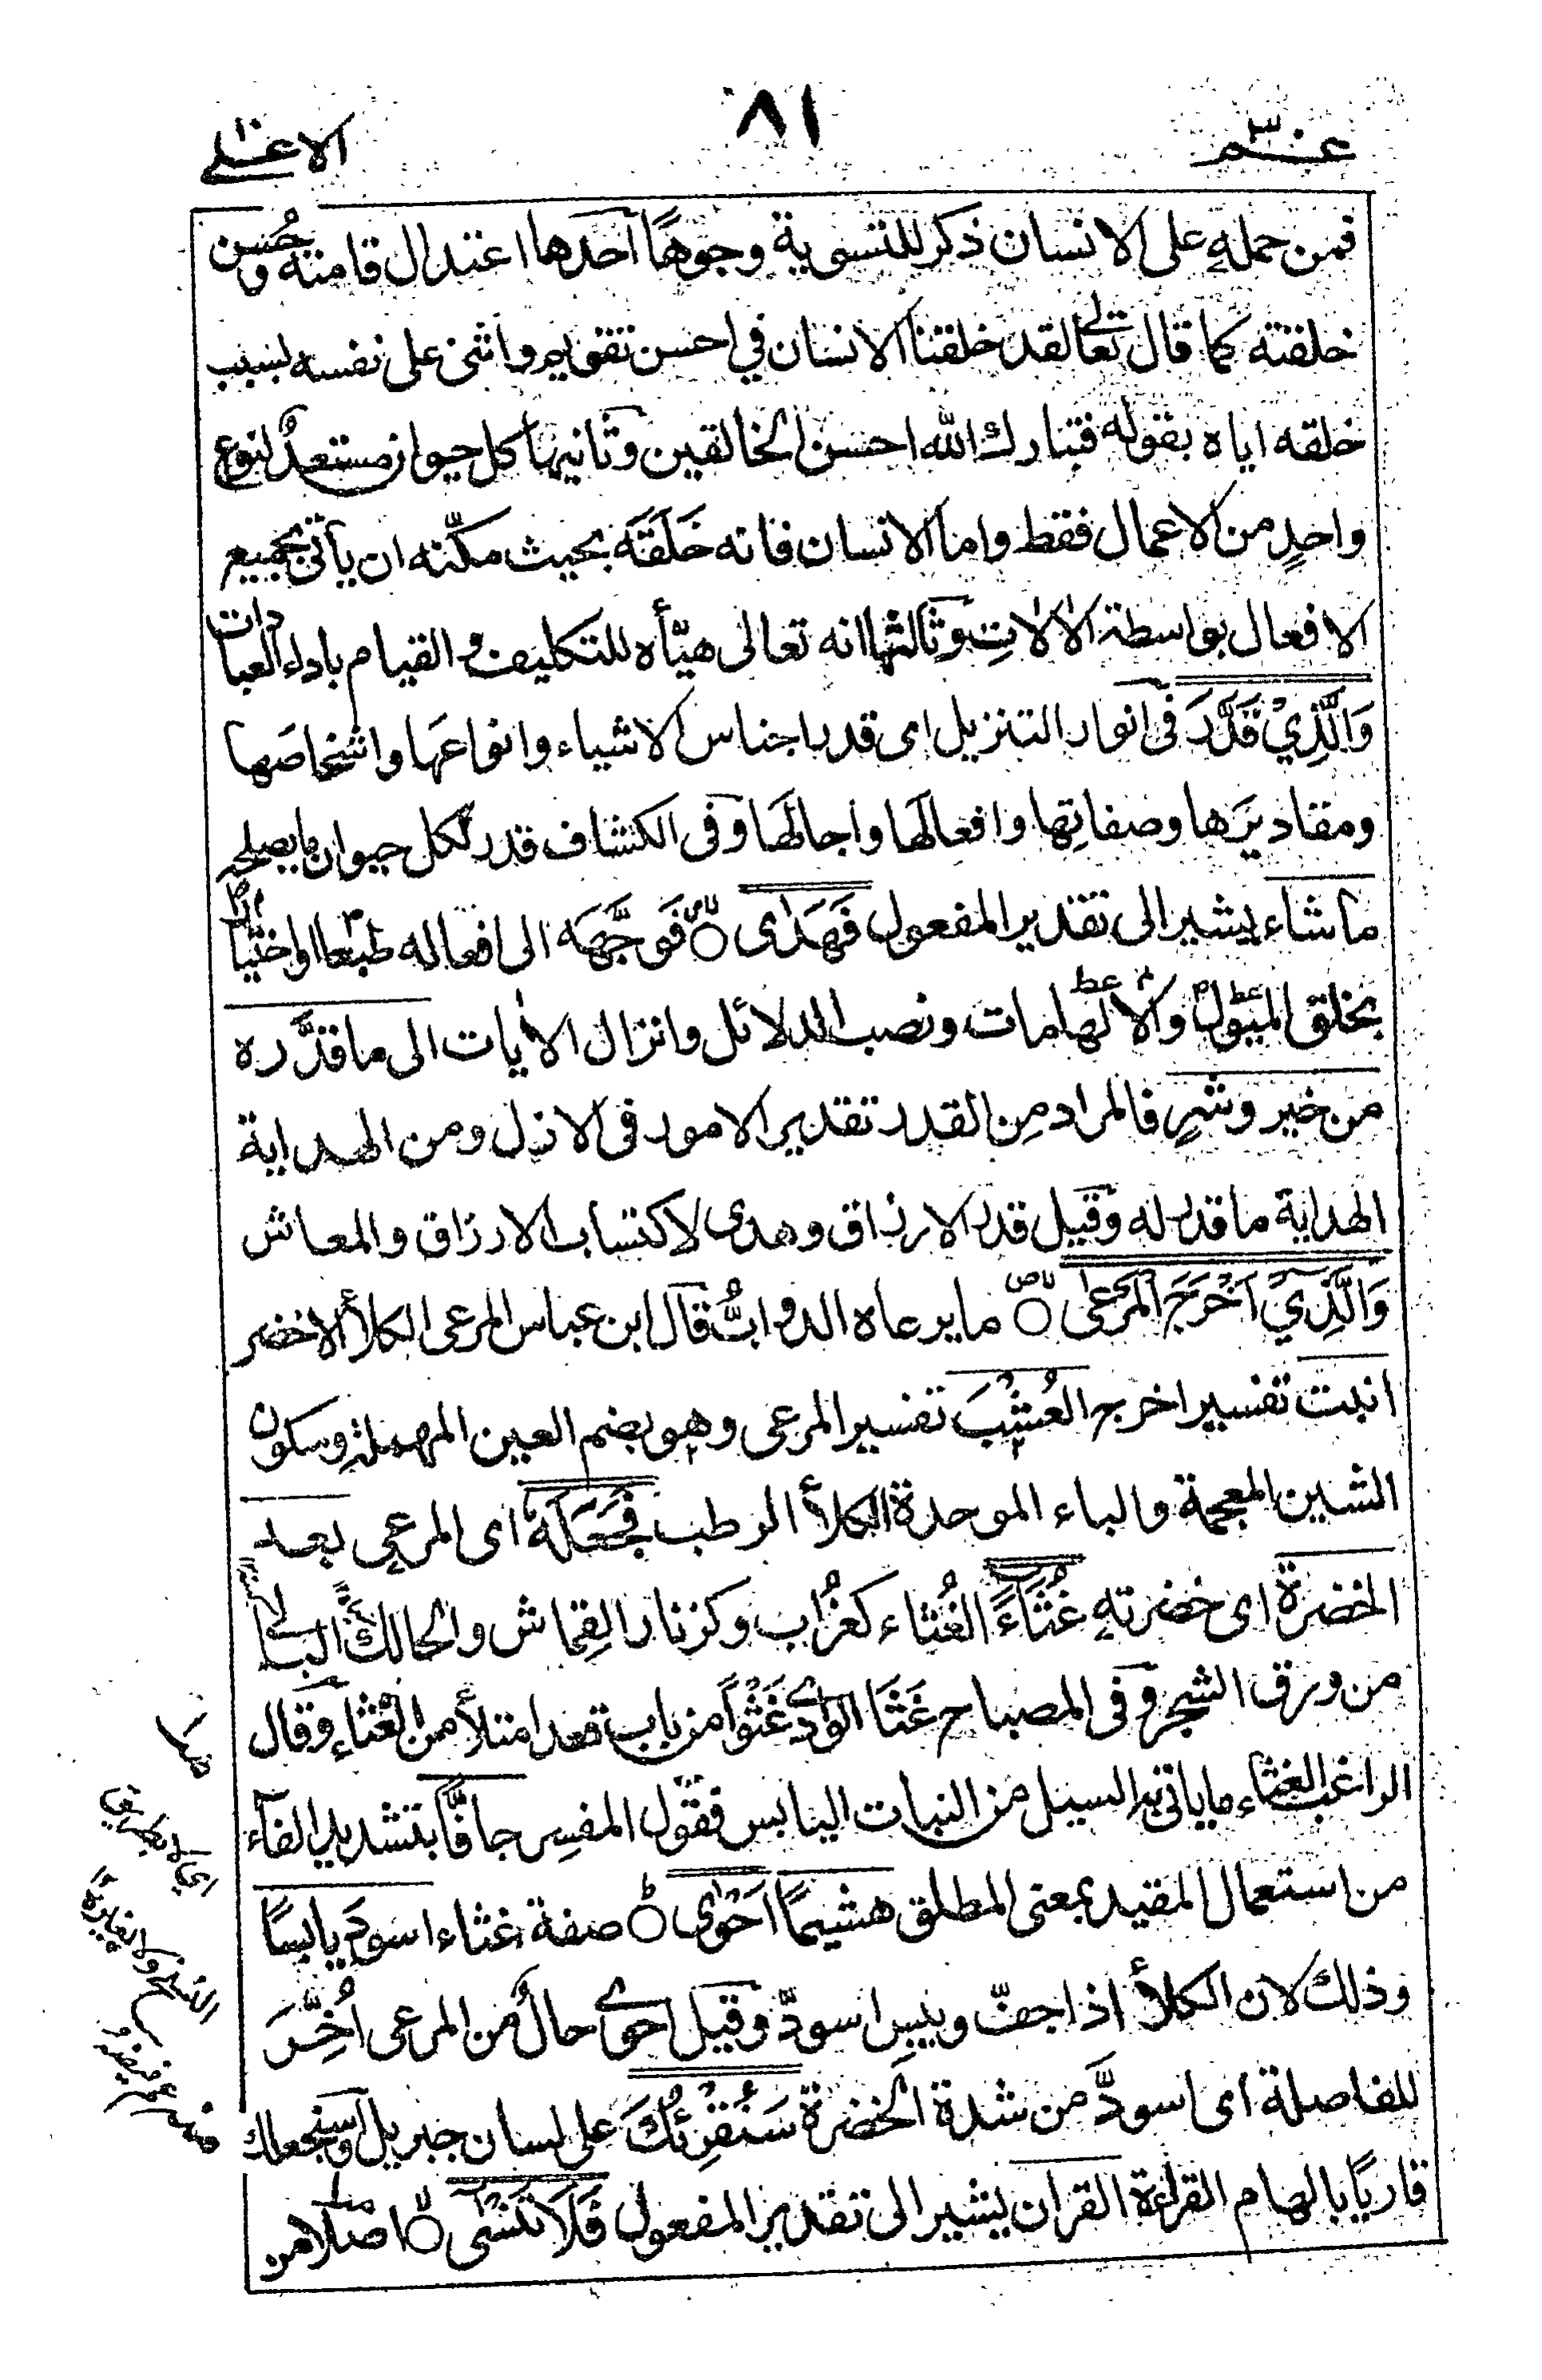 عم ٣٠
٨١
الاعلى
فمن حمله على الانسان ذكر للتسوية وجوهًا احدها اعتدال قامته وحُسن
خلقته كما قال تعالى لقد خلقنا الانسان في احسن تقويم واثنى على نفسه بسبب
خلقه اياه بقوله فتبارك الله احسن الخالقين وثانيها كل حيوان مستعدٌ لنوع
واحدٍ من الاعمال فقط واما الانسان فانه خَلَقَه بحيث مكّنه ان ياتى بجميع
الافعال بواسطة الالاتِ وثالثها انه تعالى هيّأه للتكليف والقيام باداء العبادات
وَالَّذِيْ قَدَّرَ فى انوار التنزيل اى قدر اجناس الاشياء وانواعَها واشخاصَها
ومقاديرَها وصفاتِها وافعالَها واجالَها وفى الكشاف قدر لكل حيوان ما يصلحه
ما شاء يشير الى تقدير المفعول فَهَدٰى فَوَجَّهَه الى افعاله طبعا او اختيارا
بخلق الميول والالهامات ونصب الدلائل وانزال الاٰيات الى ما قدَّره
من خير وشرٍ فالمراد مِن القدر تقدير الامور فى الازل ومن الهداية
الهداية ما قدر له وقيل قدر الارزاق وهدى لاكتساب الارزاق والمعاش
وَالَّذِيْٓ اَخْرَجَ الْمَرْعٰى ما يرعاه الدوابُّ قال ابن عباس المرعى الكلأ الاخضر
انبت تفسير اخرج العُشْبَ تفسير المرعى وهو بضم العين المهملة وسكون
الشين المعجمة والباء الموحدة الكلأ الرطب فَجَعَلَهٗ اى المرعى بعد
الخضرة اى خضرته غُثَآءً الغُثاء كغُراب وكزنار القِماش والهالكُ البالى
من ورق الشجر وفى المصباح غَثَا الوادى غَثْوًا من باب قعد امتلأ من الغُثاءِ وقال
الراغب الغثاء ما ياتى به السيل من النبات اليابس فقول المفسِر جافًّا بتشديد الفآء
من استعمال المقيد بمعنى المطلق هشيمًا اَحْوٰى صفة غثاء اسودَ يابسًا
وذلك لان الكلأ اذا جفّ ويبس اسودَّ وقيل احوى حالٌ من المرعى اُخِّرَ
للفاصلة اى اسودَّ من شدة الخضرة سَنُقْرِئُكَ على لسان جبريل او سنجعلك
قاريًا بالهام القراءة القران يشير الى تقدير المفعول فَلَا تَنْسٰٓى اصلا من